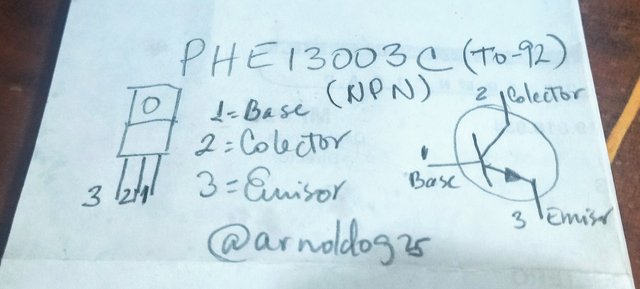 PHE13003C (TO-92)
(NPN)
1=Base
2=Colector
3=Emisor
3 2 1
2 Colector
1
Base
3 Emisor
@arnoldog25